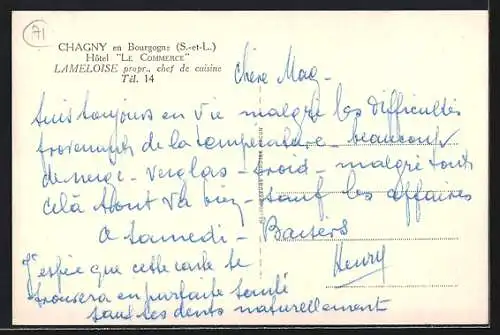 71
CHAGNY en Bourgogne (S.-et-L.)
Hôtel "Le Commerce"
LAMELOISE propr., chef de cuisine
Tél. 14
Chère Mag -
suis toujours en vie malgré les difficultés
provenant de la température - beaucoup
de neige - verglas - froid - malgré tout
celà tout va bien - sauf les affaires
a samedi - Baisers
Henry
J'espère que cette carte te
trouvera en parfaite santé
sauf les dents naturellement